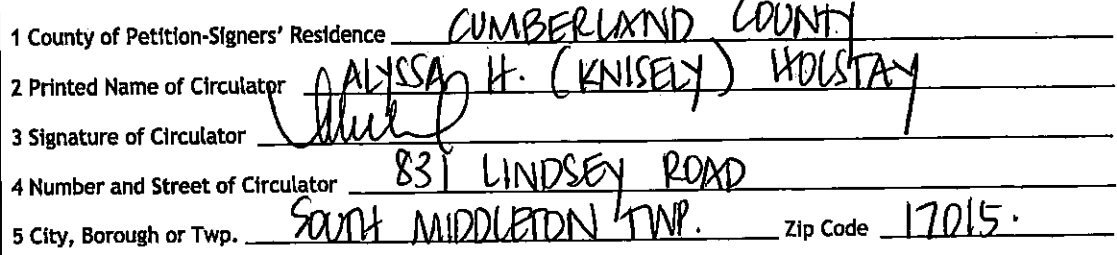 1 County of Petition-Signers' Residence CUMBERLAND COUNTY
2 Printed Name of Circulator ALYSSA H. (KNISELY) HOLSTAY
3 Signature of Circulator
4 Number and Street of Circulator 831 LINDSEY ROAD
5 City, Borough or Twp. SOUTH MIDDLETON TWP. Zip Code 17015.